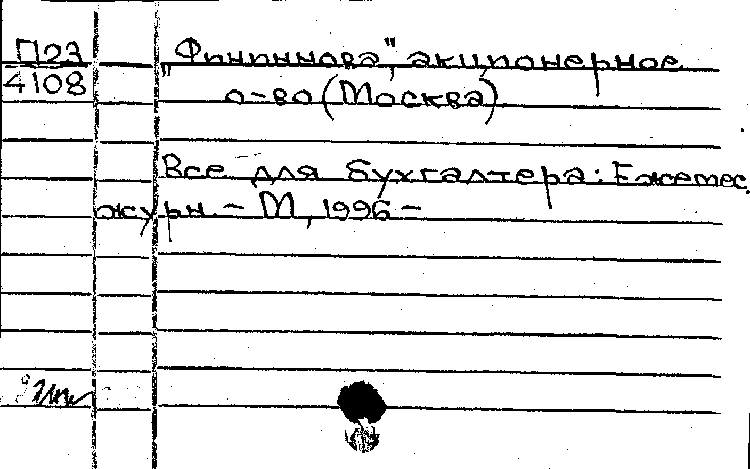 П23
4108
"Фининнова", акционерное
о-во (Москва)
Все для бухгалтера: Ежемес.
журн. - М, 1996 -